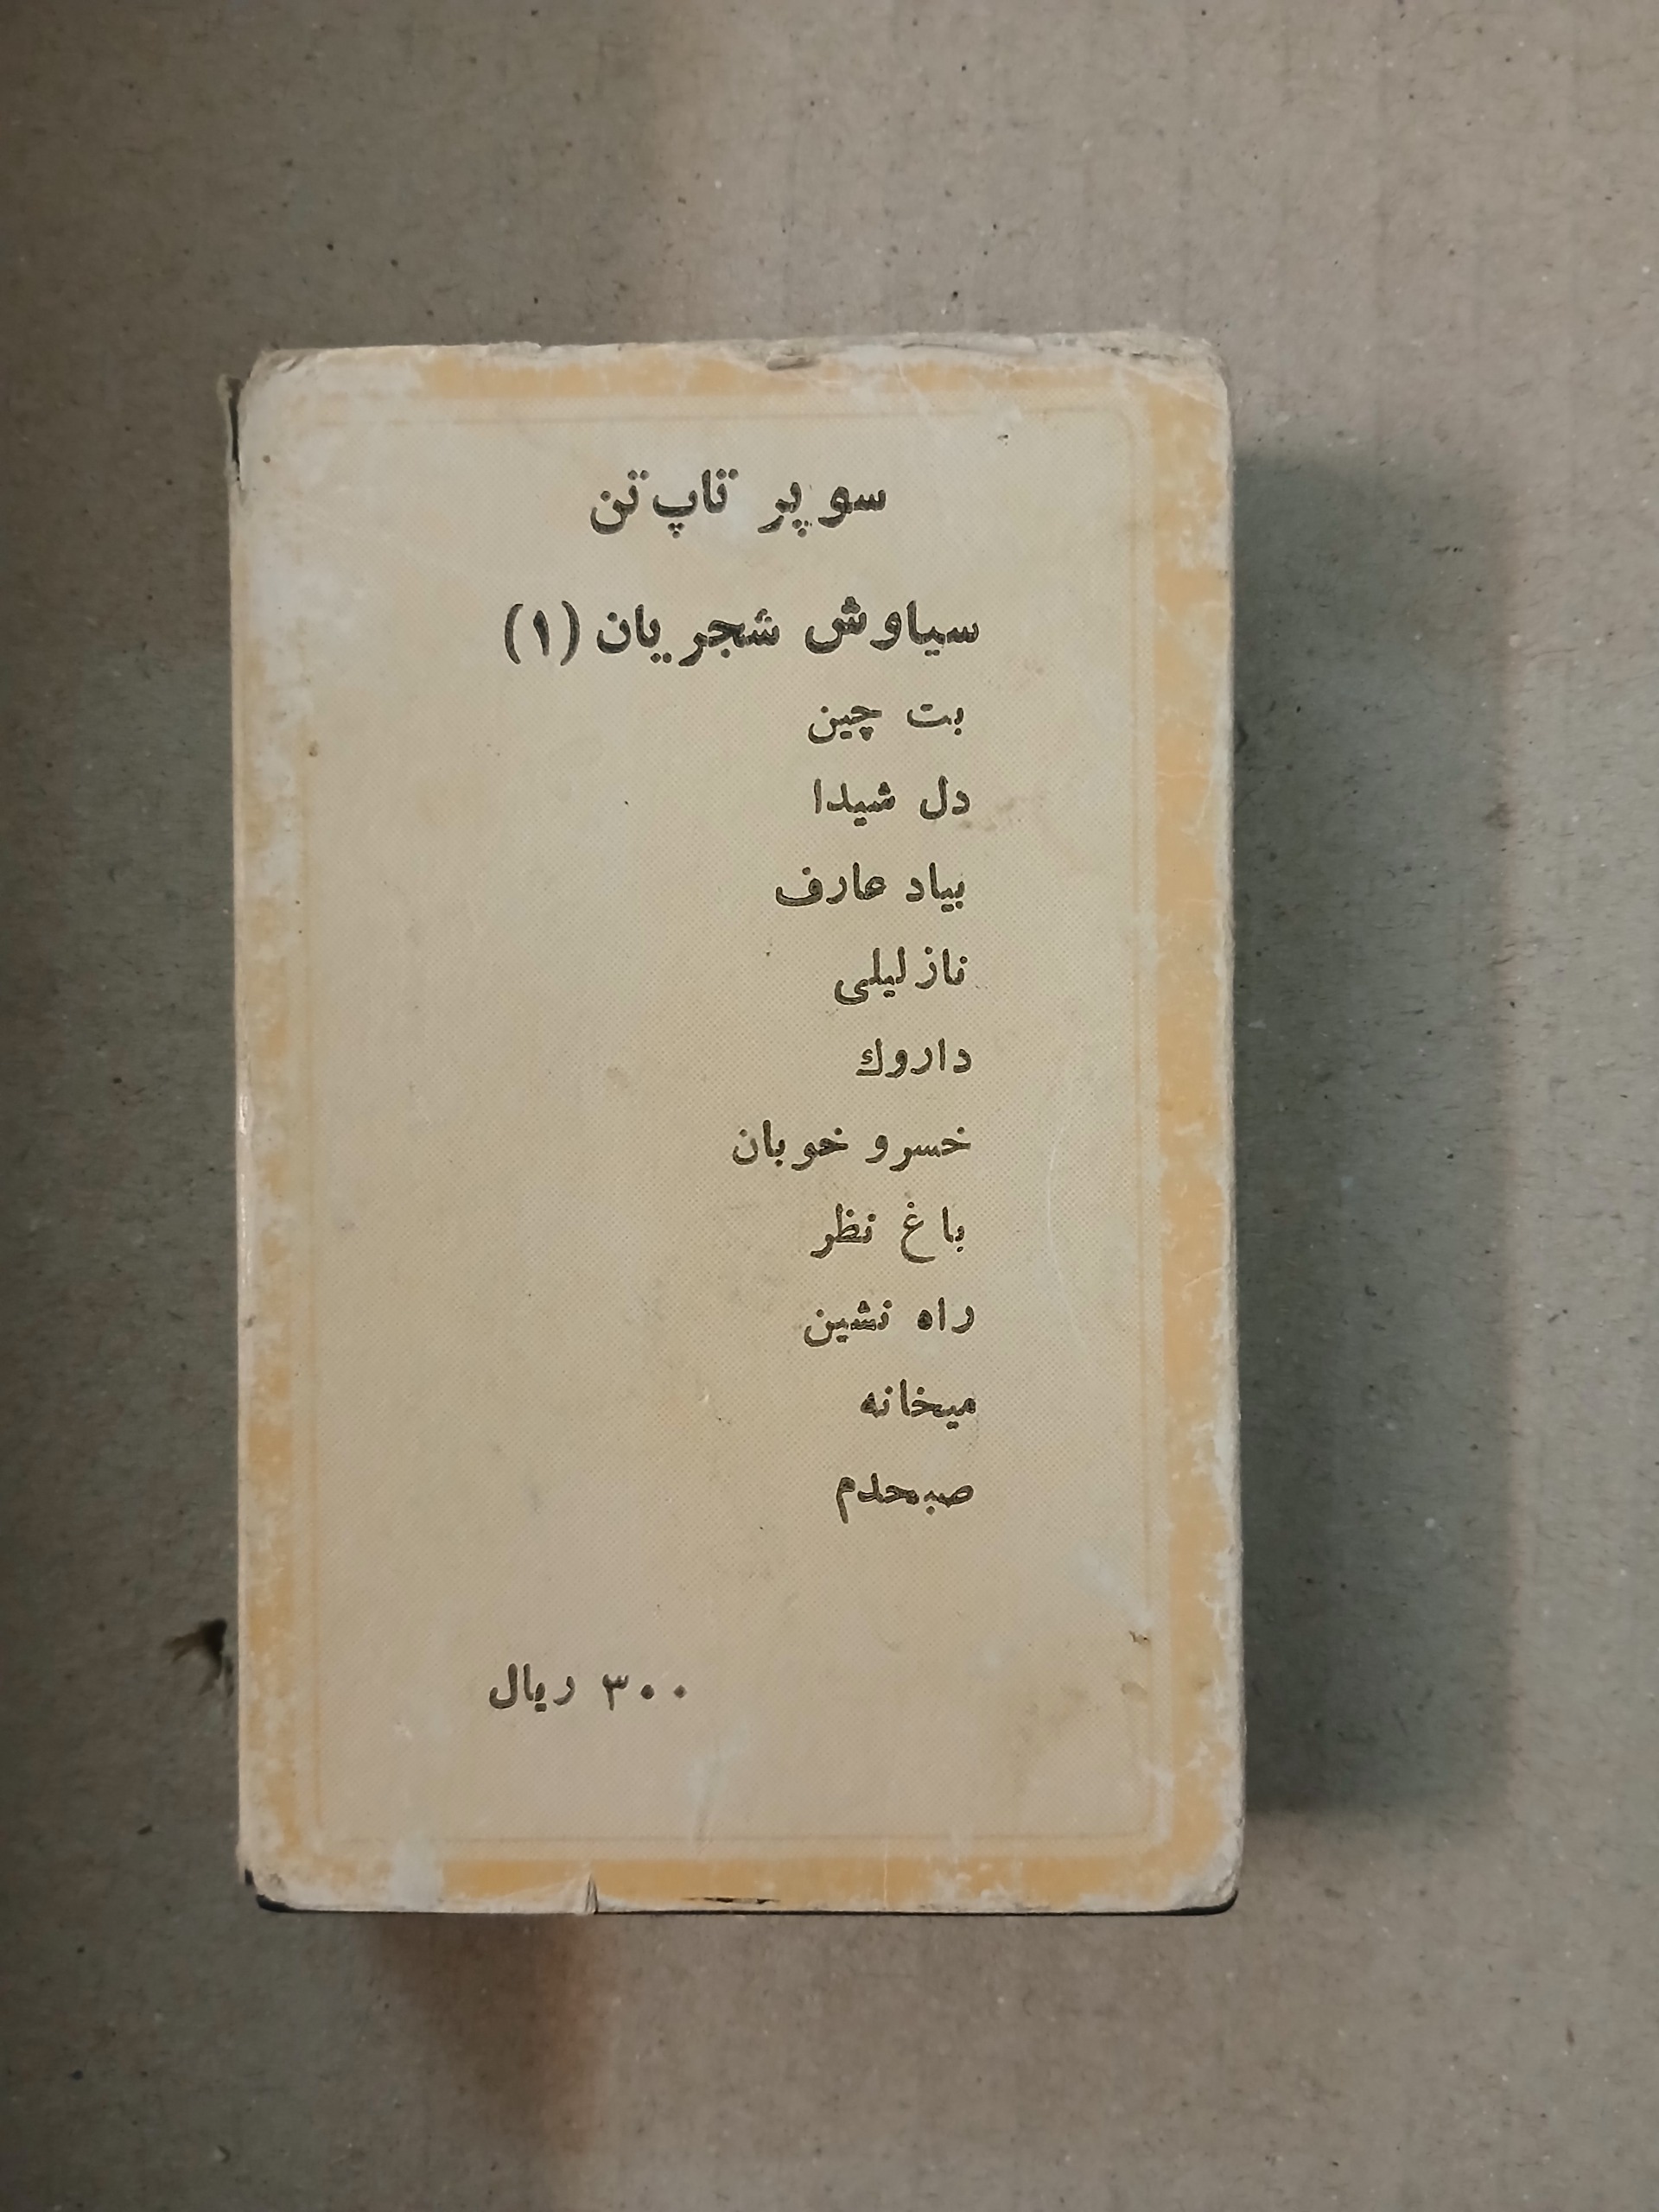 سوپر تاپ تن
سیاوش شجریان (۱)
بت چین
دل شیدا
بیاد عارف
ناز لیلی
داروك
خسرو خوبان
باغ نظر
راه نشین
میخانه
صبحدم
۳۰۰ ریال